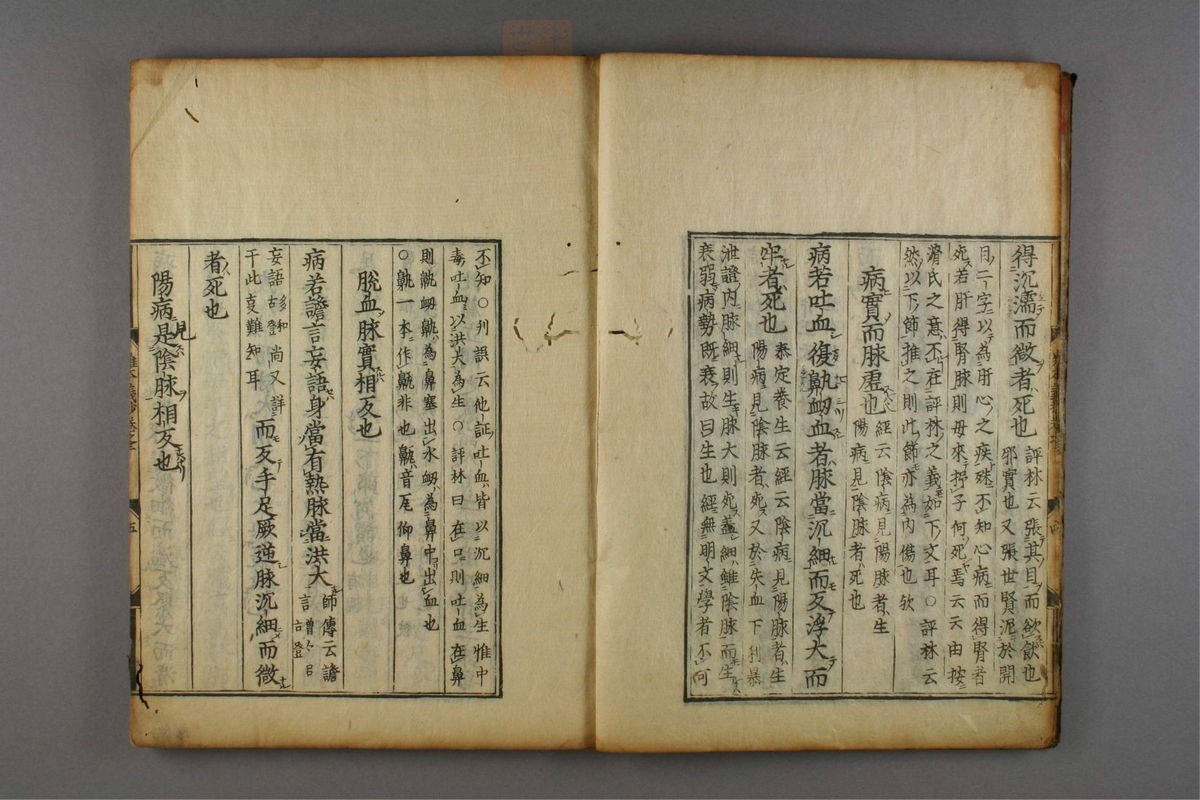 得沉濡而微者死也 評林云張其目而欲飲也
邪實也又張世賢泥於開
目二字以為肝心之疾殊不知心病而得腎者
死若肝得腎脉則母來子何死焉云云由按
滑氏之意不在評林之義如下文耳○評林云
然以下節推之則此節亦為内傷也欤
病實而脉虚也 經云陰病見陽脉者生
陽病見陰脉者死也
病若吐血復鼽衂血者脉當沉細而反浮大而
牢者死也 泰定養生云經云陰病見陽脉者生
陽病見陰脉者死又於失血下利暴
泄證内脉細則生脉大則死蓋細雖陰脉而生
衰弱病勢既衰故曰生也經無明文學者不可
不知○刋誤云他証吐血皆以沉細為生惟中
毒吐血以洪大為生○評林曰在口則吐血在鼻
則鼽衂鼽為鼻塞出水衂為鼻中出血也
○鼽一本作鼽非也鼽音尻仰鼻也
脱血脉實相反也
病若譫言妄語身當有熱脉當洪大 師傳云譫
言
妄語 尚又詳
于此支難知耳 而反手足厥逆脉沉細而微
者死也
陽病見是陰脉相反也
難經 卷之 五